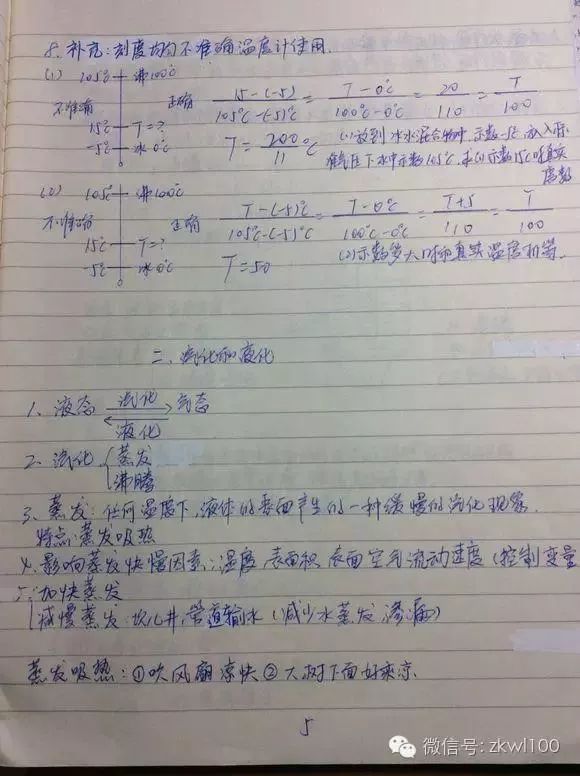 8. 补充:刻度均匀不准确温度计使用.
(1) 105℃ 沸100℃
不准确 正确 15-(-5) / 105℃-(-5)℃ = T-0℃ / 100℃-0℃ = 20/110 = T/100
15℃ T=?
-5℃ 冰0℃
T=200/11 ℃ (1)放到冰水混合物中,示数-5℃,放入标
准气压下水中示数105℃,求(1)示数15℃时真实
度数
(2) 105℃ 沸100℃
不准确 正确 T-(-5)℃ / 105℃-(-5)℃ = T-0℃ / 100℃-0℃ = T+5/110 = T/100
15℃ T=?
-5℃ 冰0℃
T=50 (2)示数多大时和真实温度相等.
二、汽化和液化
1、液态 汽化 气态
液化
2、汽化 蒸发
沸腾
3、蒸发:任何温度下,液体的表面产生的一种缓慢的汽化现象.
特点:蒸发吸热
4、影响蒸发快慢因素:温度,表面积,表面空气流动速度(控制变量
5、加快蒸发
减慢蒸发:坎儿井,管道输水(减少水蒸发,渗漏)
蒸发吸热:①吹风扇凉快②大树下面好乘凉
5
微信号: zkwl100